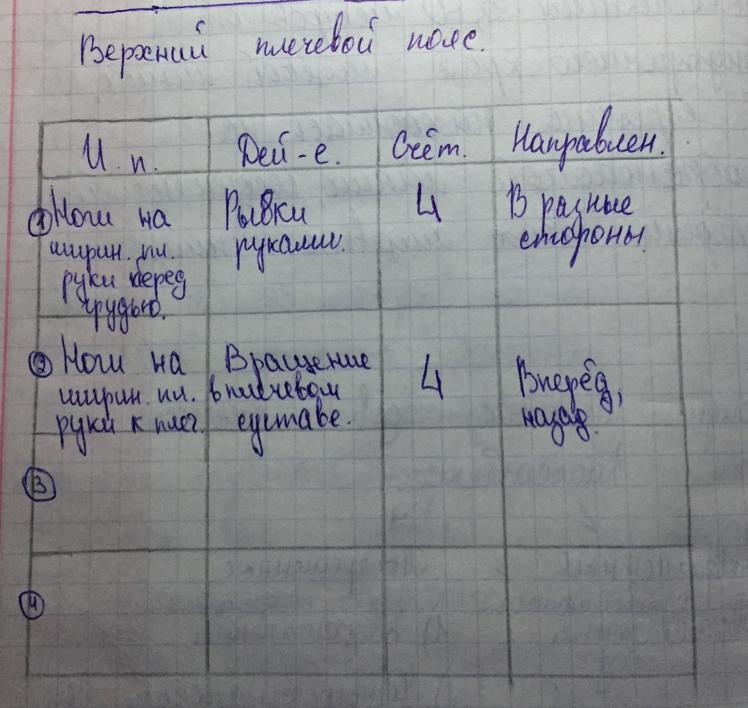 Верхний плечевой пояс.
И. п. Дей-е. Счёт. Направлен.
① Ноги на Рывки 4 В разные
ширин. пл. руками. стороны.
руки перед
грудью.
② Ноги на Вращение 4 Вперёд,
ширин. пл. в плечевом назад.
руки к плеч. суставе.
③
④